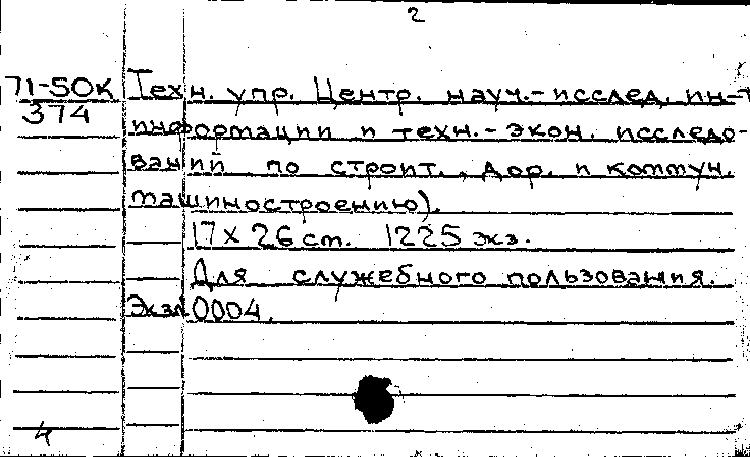 2
71-50к Техн. упр. Центр. науч.-исслед. ин-т
374
информации и техн.-экон. исследо-
ваний по строит., дор. и коммун.
машиностроению).
17 х 26 см. 1225 экз.
Для служебного пользования.
Экз. 0004.
4